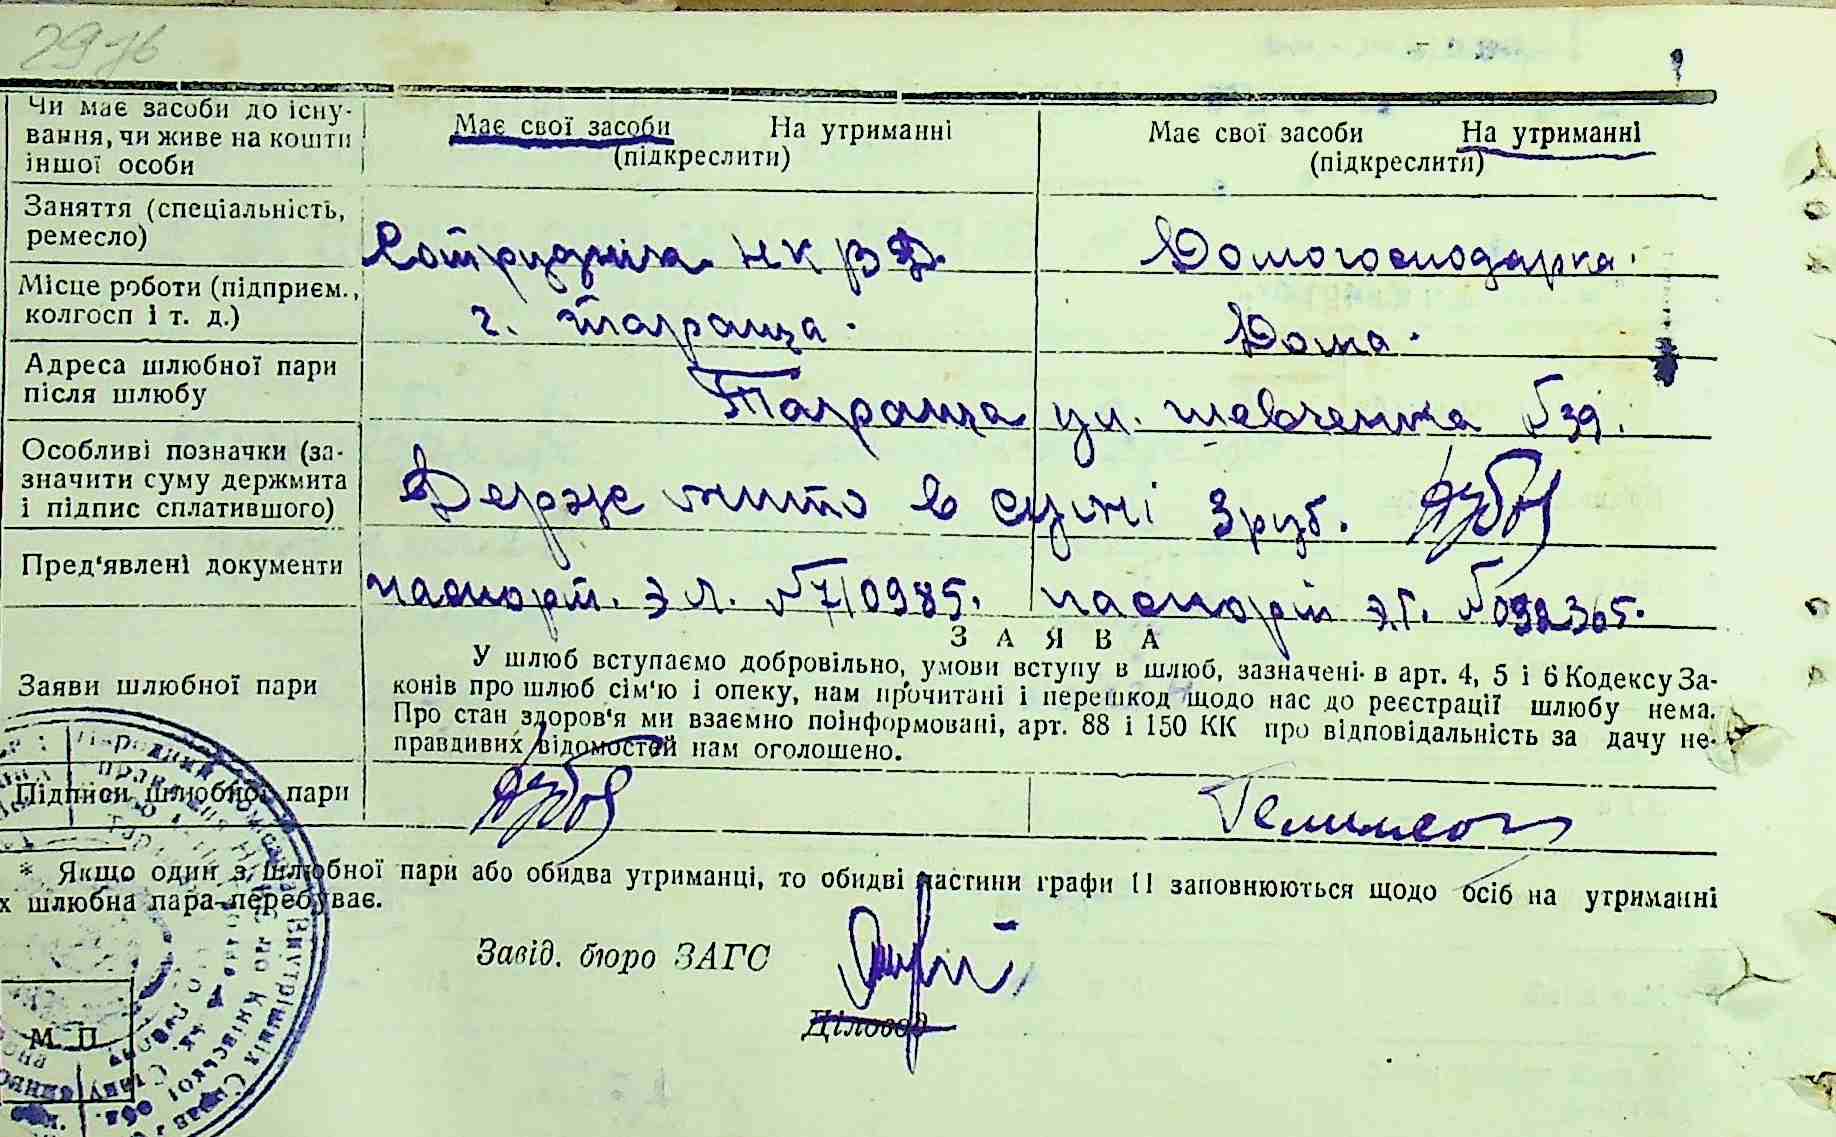 Чи має засоби до існу-
вання, чи живе на кошти
іншої особи
Має свої засоби На утриманні
(підкреслити)
Має свої засоби На утриманні
(підкреслити)
Заняття (спеціальність,
ремесло)
НКВД.
Домогосподарка.
Місце роботи (підприєм.,
колгосп і т. д.)
г. Тараща.
Дома.
Адреса шлюбної пари
після шлюбу
Тараща ул. Шевченка №39.
Особливі позначки (за-
значити суму держмита
і підпис сплатившого)
Держ мито в сумі 3 руб.
Пред'явлені документи
паспорт. ЭЛ. №710985. паспорт ЭГ. №092365.
ЗАЯВА
Заяви шлюбної пари
У шлюб вступаємо добровільно, умови вступу в шлюб, зазначені в арт. 4, 5 і 6 Кодексу За-
конів про шлюб сім'ю і опеку, нам прочитані і перешкод щодо нас до реєстрації шлюбу нема.
Про стан здоров'я ми взаємно поінформовані, арт. 88 і 150 КК про відповідальність за дачу не-
правдивих відомостей нам оголошено.
Підписи шлюбної пари
* Якщо один з шлюбної пари або обидва утриманці, то обидві частини графи 11 заповнюються щодо осіб на утриманні
х шлюбна пара перебуває.
Завід. бюро ЗАГС
Діловод
М. П.